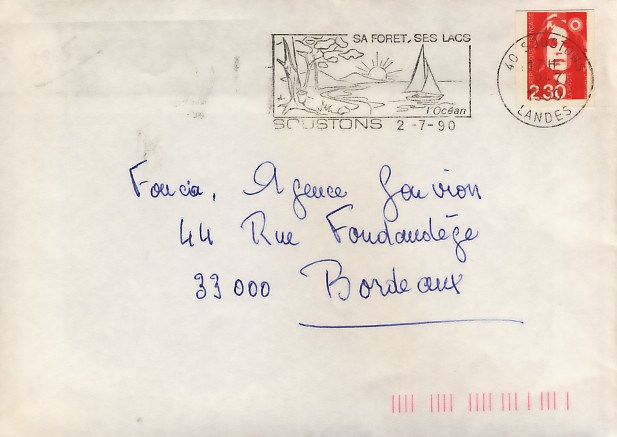 SA FORET, SES LACS
l'Océan
SOUSTONS 2-7-90
40 SOUSTONS
LANDES
2,30
Foncia, Agence Gouvion
44 Rue Fondaudège
33 000 Bordeaux